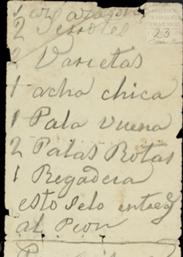 2 Varietas
1 acha chica
1 Pala vuena
2 Palas Rotas
1 Regadera
esto selo entreg
al Peon